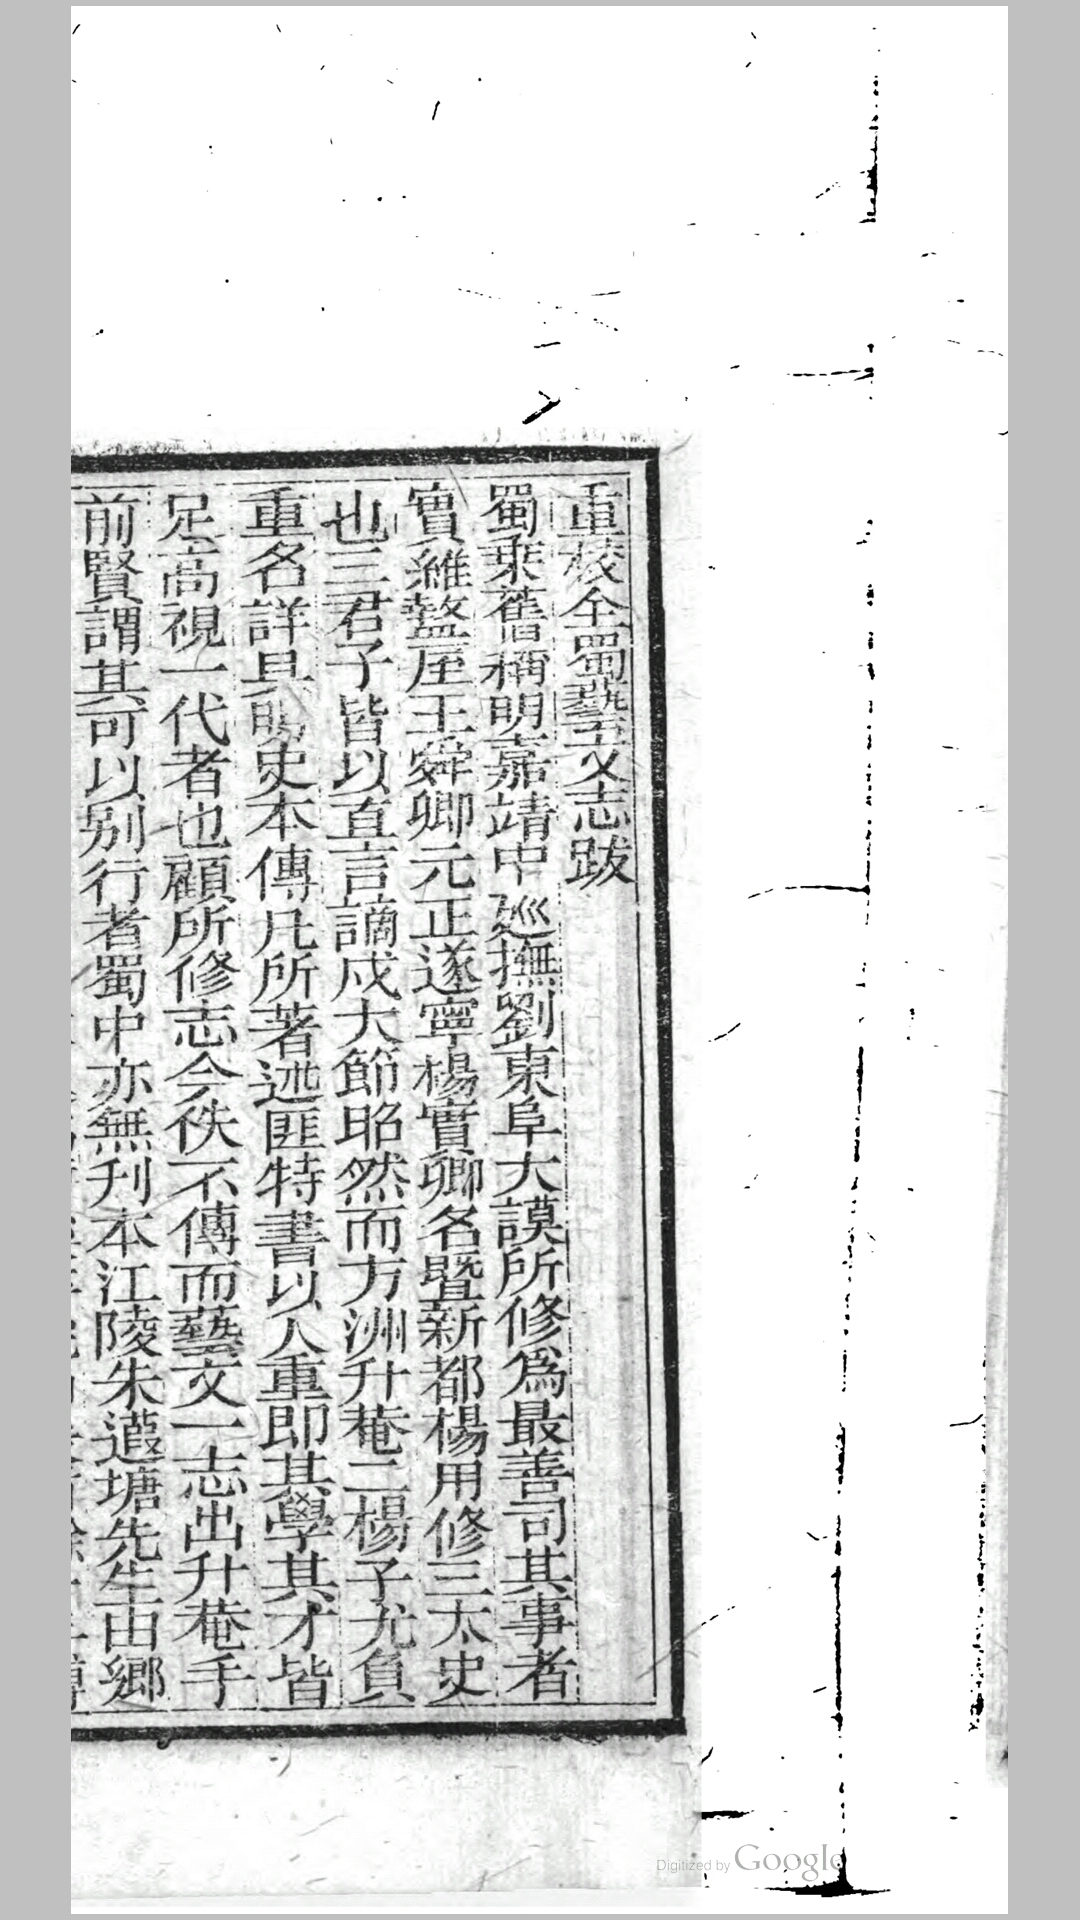 重校全蜀藝文志跋
蜀乘舊稱明嘉靖中廵撫劉東阜大謨所修爲最善司其事者
實維盩厔王舜卿元正遂寧楊實卿名曁新都楊用修三太史
也三君子皆以直言謫戍大節昭然而方洲升菴二楊子尤負
重名詳具明史本傳凡所著述匪特書以人重即其學其才皆
足高視一代者也顧所修志今佚不傳而藝文一志出升菴手
前賢謂其可以别行者蜀中亦無刋本江陵朱遐塘先生由鄉
Digitized by Google